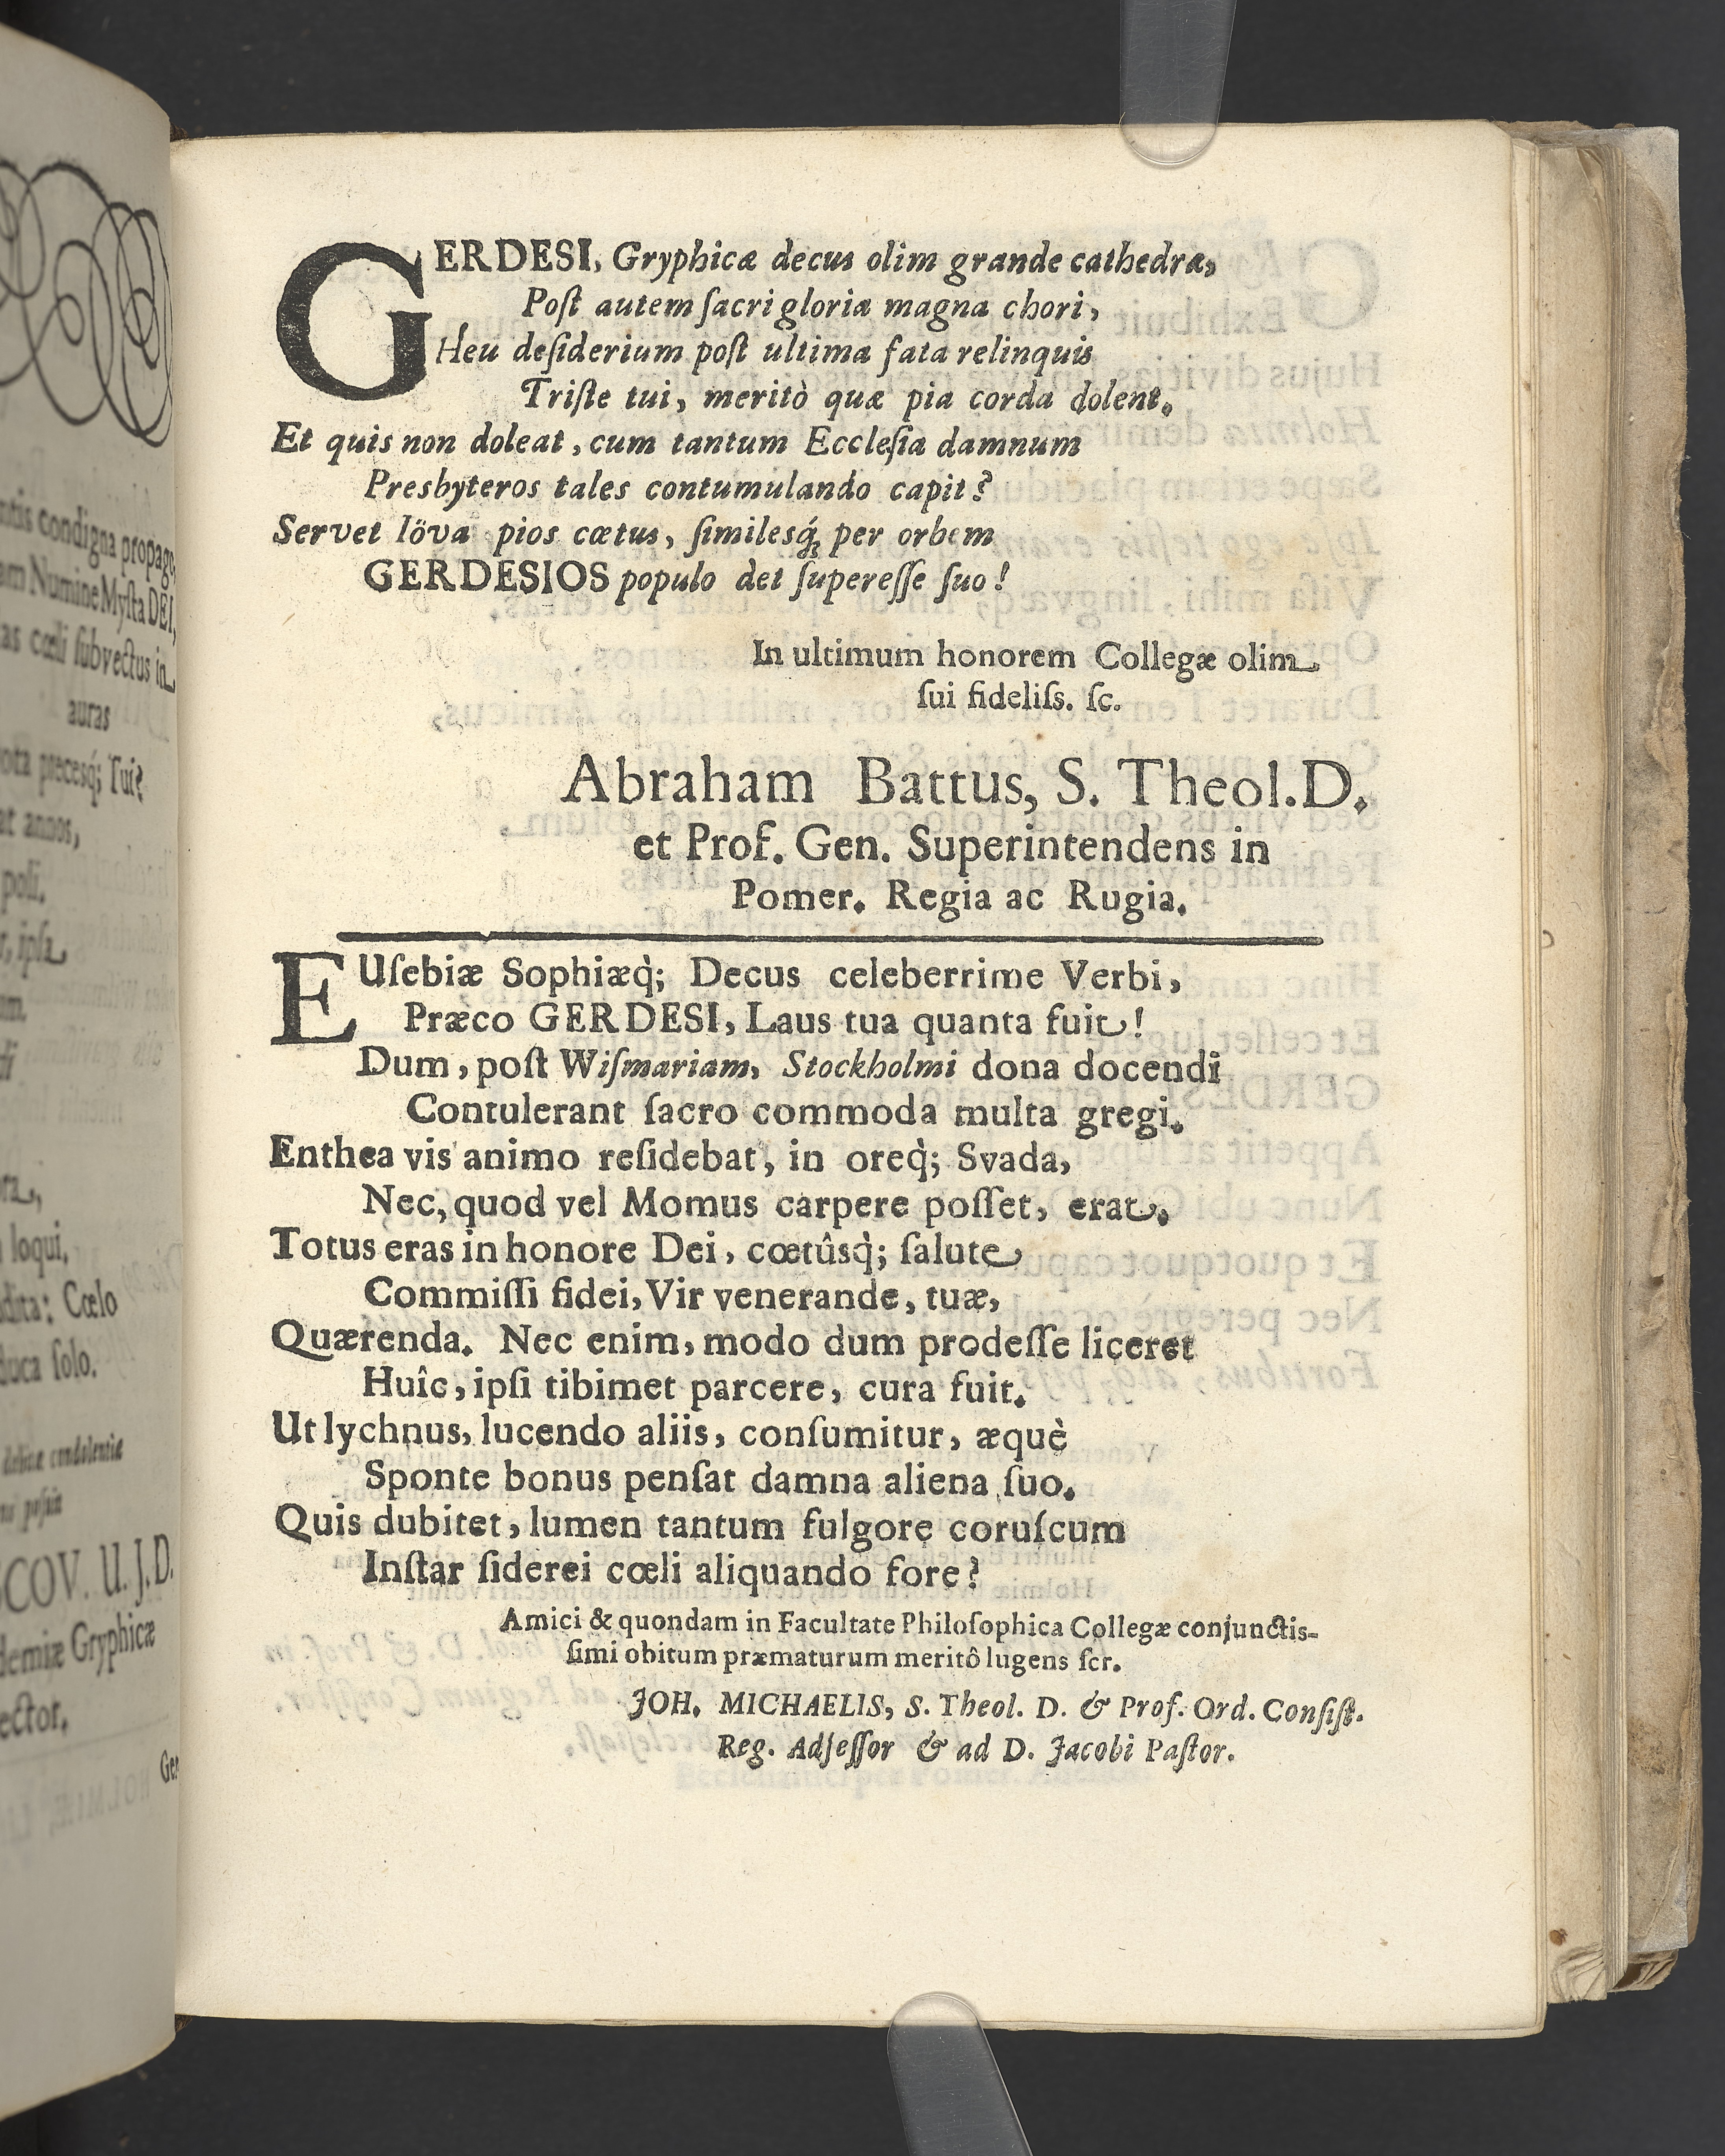 ntis condigna propago,
am Numine Myſta DEI,
as cœli ſubvectus in
auras
ota precesq́; Tui?
at annos,
poli.
r, ipſa
um.
di
loqui,
dita: Cœlo
duca ſolo.
debitæ condolentiæ
poſuit
SCOV. U. J. D.
demiæ Gryphicæ
ector.
Ger
GERDESI, Gryphicæ decus olim grande cathedræ,
Poſt autem ſacri gloria magna chori,
Heu deſiderium poſt ultima fata relinquis
Triſte tui, meritò quæ pia corda dolent.
Et quis non doleat, cum tantum Eccleſia damnum
Presbyteros tales contumulando capit?
Servet Iöva pios cœtus, ſimilesq́; per orbem
GERDESIOS populo det ſupereſſe ſuo!
In ultimum honorem Collegæ olim
ſui fideliſs. ſc.
Abraham Battus, S. Theol. D.
et Prof. Gen. Superintendens in
Pomer. Regia ac Rugia.
EUſebiæ Sophiæq̀; Decus celeberrime Verbi,
Præco GERDESI, Laus tua quanta fuit!
Dum, poſt Wiſmariam, Stockholmi dona docendi
Contulerant ſacro commoda multa gregi.
Enthea vis animo reſidebat, in oreq̀; Svada,
Nec, quod vel Momus carpere poſſet, erat.
Totus eras in honore Dei, cœtûsq̀; ſalute
Commiſſi fidei, Vir venerande, tuæ,
Quærenda. Nec enim, modo dum prodeſſe liceret
Huîc, ipſi tibimet parcere, cura fuit.
Ut lychnus, lucendo aliis, conſumitur, æquè
Sponte bonus penſat damna aliena ſuo.
Quis dubitet, lumen tantum fulgore coruſcum
Inſtar ſiderei cœli aliquando fore?
Amici & quondam in Facultate Philoſophica Collegæ conjunctis-
ſimi obitum præmaturum meritô lugens ſcr.
JOH. MICHAELIS, S. Theol. D. & Prof. Ord. Conſiſt.
Reg. Adſeſſor & ad D. Jacobi Paſtor.